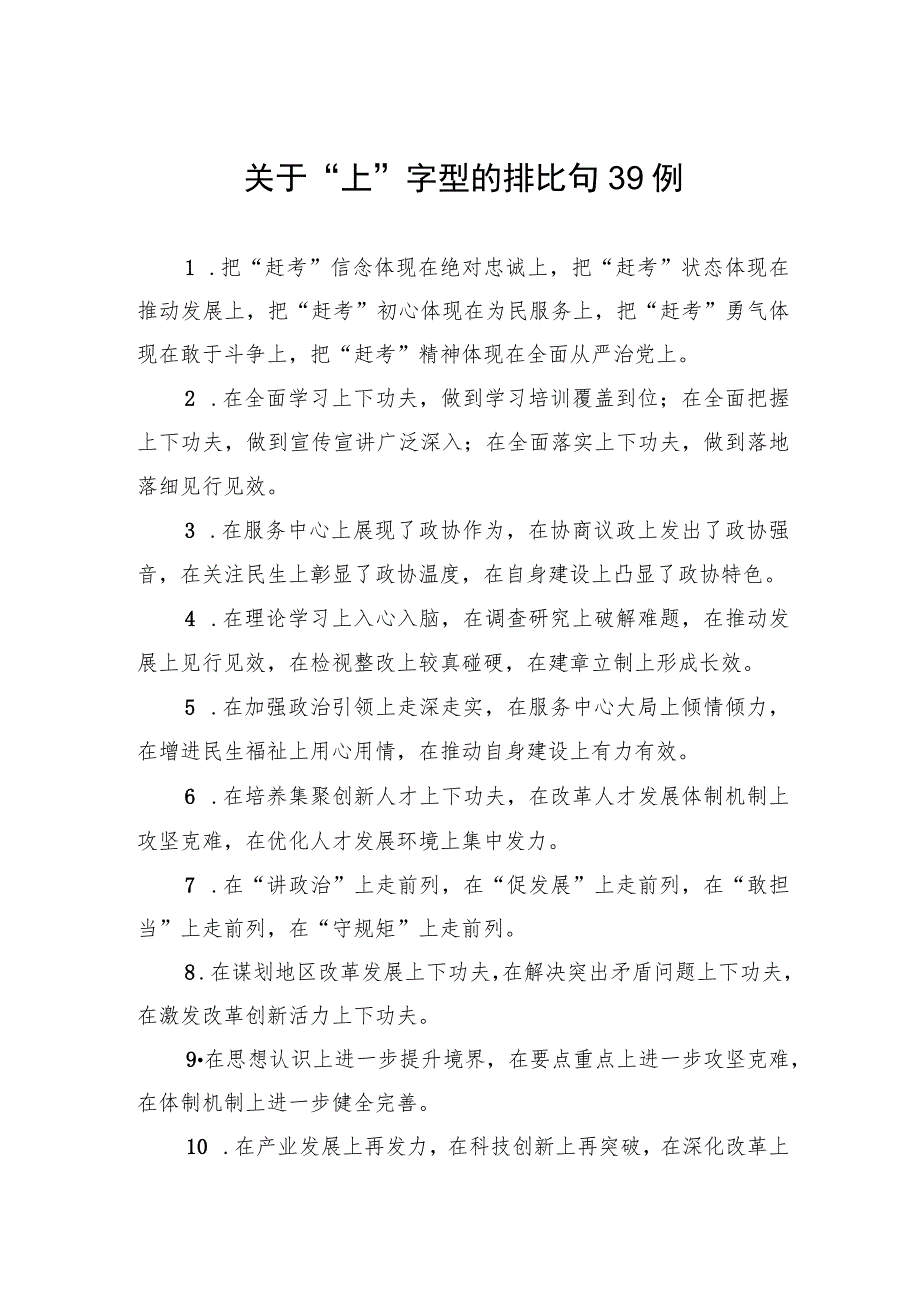 关于“上”字型的排比句39例
1 .把“赶考”信念体现在绝对忠诚上，把“赶考”状态体现在
推动发展上，把“赶考”初心体现在为民服务上，把“赶考”勇气体
现在敢于斗争上，把“赶考”精神体现在全面从严治党上。
2 .在全面学习上下功夫，做到学习培训覆盖到位；在全面把握
上下功夫，做到宣传宣讲广泛深入；在全面落实上下功夫，做到落地
落细见行见效。
3 .在服务中心上展现了政协作为，在协商议政上发出了政协强
音，在关注民生上彰显了政协温度，在自身建设上凸显了政协特色。
4 .在理论学习上入心入脑，在调查研究上破解难题，在推动发
展上见行见效，在检视整改上较真碰硬，在建章立制上形成长效。
5 .在加强政治引领上走深走实，在服务中心大局上倾情倾力，
在增进民生福祉上用心用情，在推动自身建设上有力有效。
6 .在培养集聚创新人才上下功夫，在改革人才发展体制机制上
攻坚克难，在优化人才发展环境上集中发力。
7 .在“讲政治”上走前列，在“促发展”上走前列，在“敢担
当”上走前列，在“守规矩”上走前列。
8.在谋划地区改革发展上下功夫,在解决突出矛盾问题上下功夫，
在激发改革创新活力上下功夫。
9•在思想认识上进一步提升境界，在要点重点上进一步攻坚克难，
在体制机制上进一步健全完善。
10 .在产业发展上再发力，在科技创新上再突破，在深化改革上